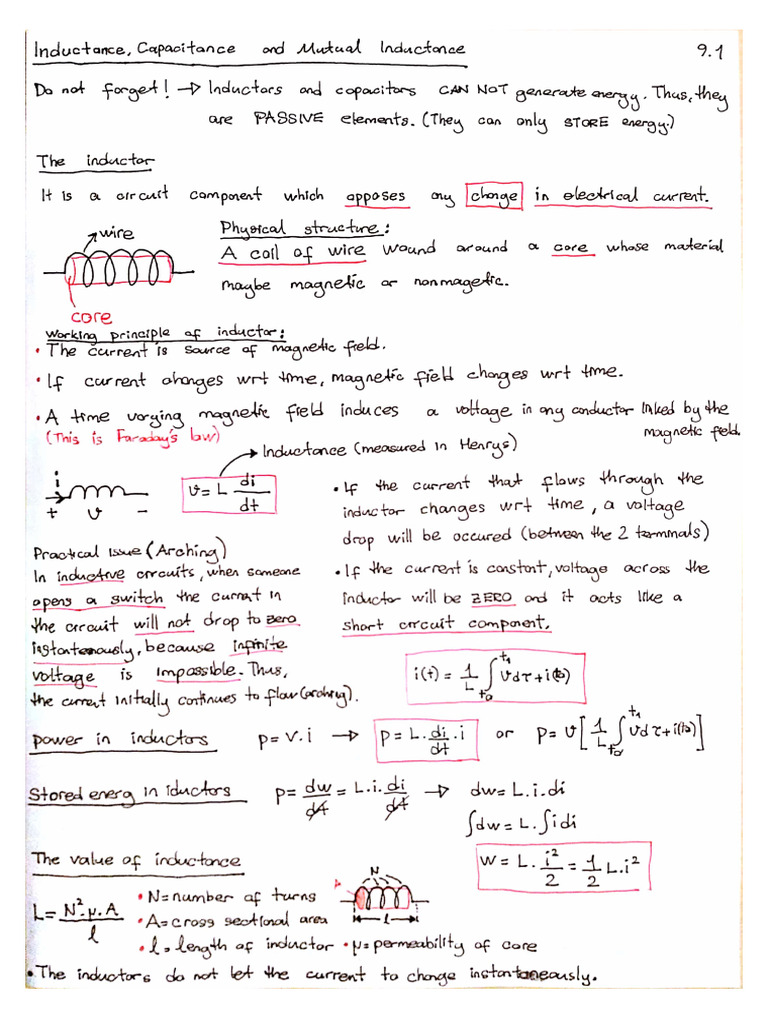 Inductance, Capacitance and Mutual Inductance 9.1
Do not forget! → Inductors and capacitors CAN NOT generate energy. Thus, they
are PASSIVE elements. (They can only STORE energy.)
The inductor
It is a circuit component which apposes any change in electrical current.
wire
core
Physical structure:
A coil of wire wound around a core whose material
maybe magnetic or nonmagetic.
Working principle of inductor:
• The current is source of magnetic field.
• If current changes wrt time, magnetic field changes wrt time.
• A time varying magnetic field induces a voltage in any conductor linked by the
magnetic field.
(This is Faraday's law)
Inductance (measured in Henrys)
i
+ v -
v = L di/dt
• If the current that flows through the
inductor changes wrt time, a voltage
drop will be occured (between the 2 terminals)
• If the current is constant, voltage across the
inductor will be ZERO and it acts like a
short circuit component.
i(t) = 1/L ∫ t₀ t₁ v dτ + i(t₀)
Practical Issue (Arching)
In inductive circuits, when someone
opens a switch the current in
the circuit will not drop to zero
instantaneously, because infinite
voltage is impossible. Thus,
the current initially continues to flow (arching).
power in inductors p = v.i → p = L. di/dt .i or p = v [1/L ∫ t₀ t₁ v dτ + i(t₀)]
Stored energ in iductors p = dw/dt = L.i. di/dt → dw = L.i.di
∫dw = L.∫idi
w = L. i²/2 = 1/2 L.i²
The value of inductance
L = N².μ.A / l
• N = number of turns
• A = cross sectional area
• l = length of inductor • μ = permeability of core
A
N
l
• The inductors do not let the current to change instantaneously.